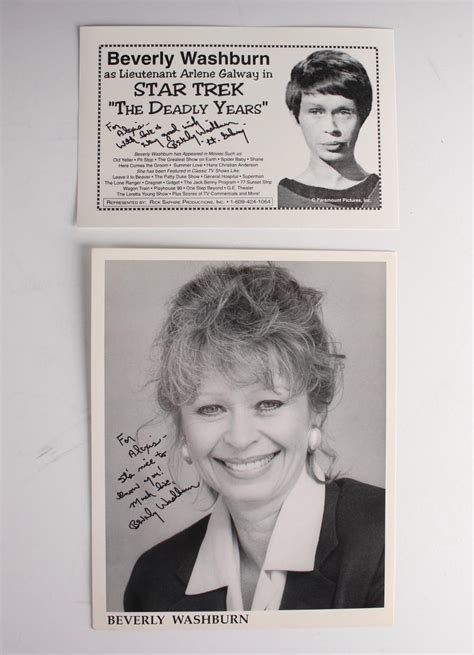 Beverly Washburn
as Lieutenant Arlene Galway in
STAR TREK
"THE DEADLY YEARS"
For Alexis-
With love &
very good wishes
Beverly Washburn
Lt. Galway
Beverly Washburn has Appeared in Movies Such as:
Old Yeller • Pit Stop • The Greatest Show on Earth • Spider Baby • Shane
Here Comes the Groom • Summer Love • Hans Christian Anderson
She has been Featured in Classic TV Shows Like:
Leave it to Beaver • The Patty Duke Show • General Hospital • Superman
The Lone Ranger • Dragnet • Gidget • The Jack Benny Program • 77 Sunset Strip
Wagon Train • Playhouse 90 • One Step Beyond • G.E. Theater
The Loretta Young Show • Plus Scores of TV Commercials and More!
REPRESENTED BY: RICK SAPHIRE PRODUCTIONS, INC. • 1-609-424-1064
© Paramount Pictures, Inc.
For
Alexis-
So nice to
know you!
Much love,
Beverly Washburn
BEVERLY WASHBURN